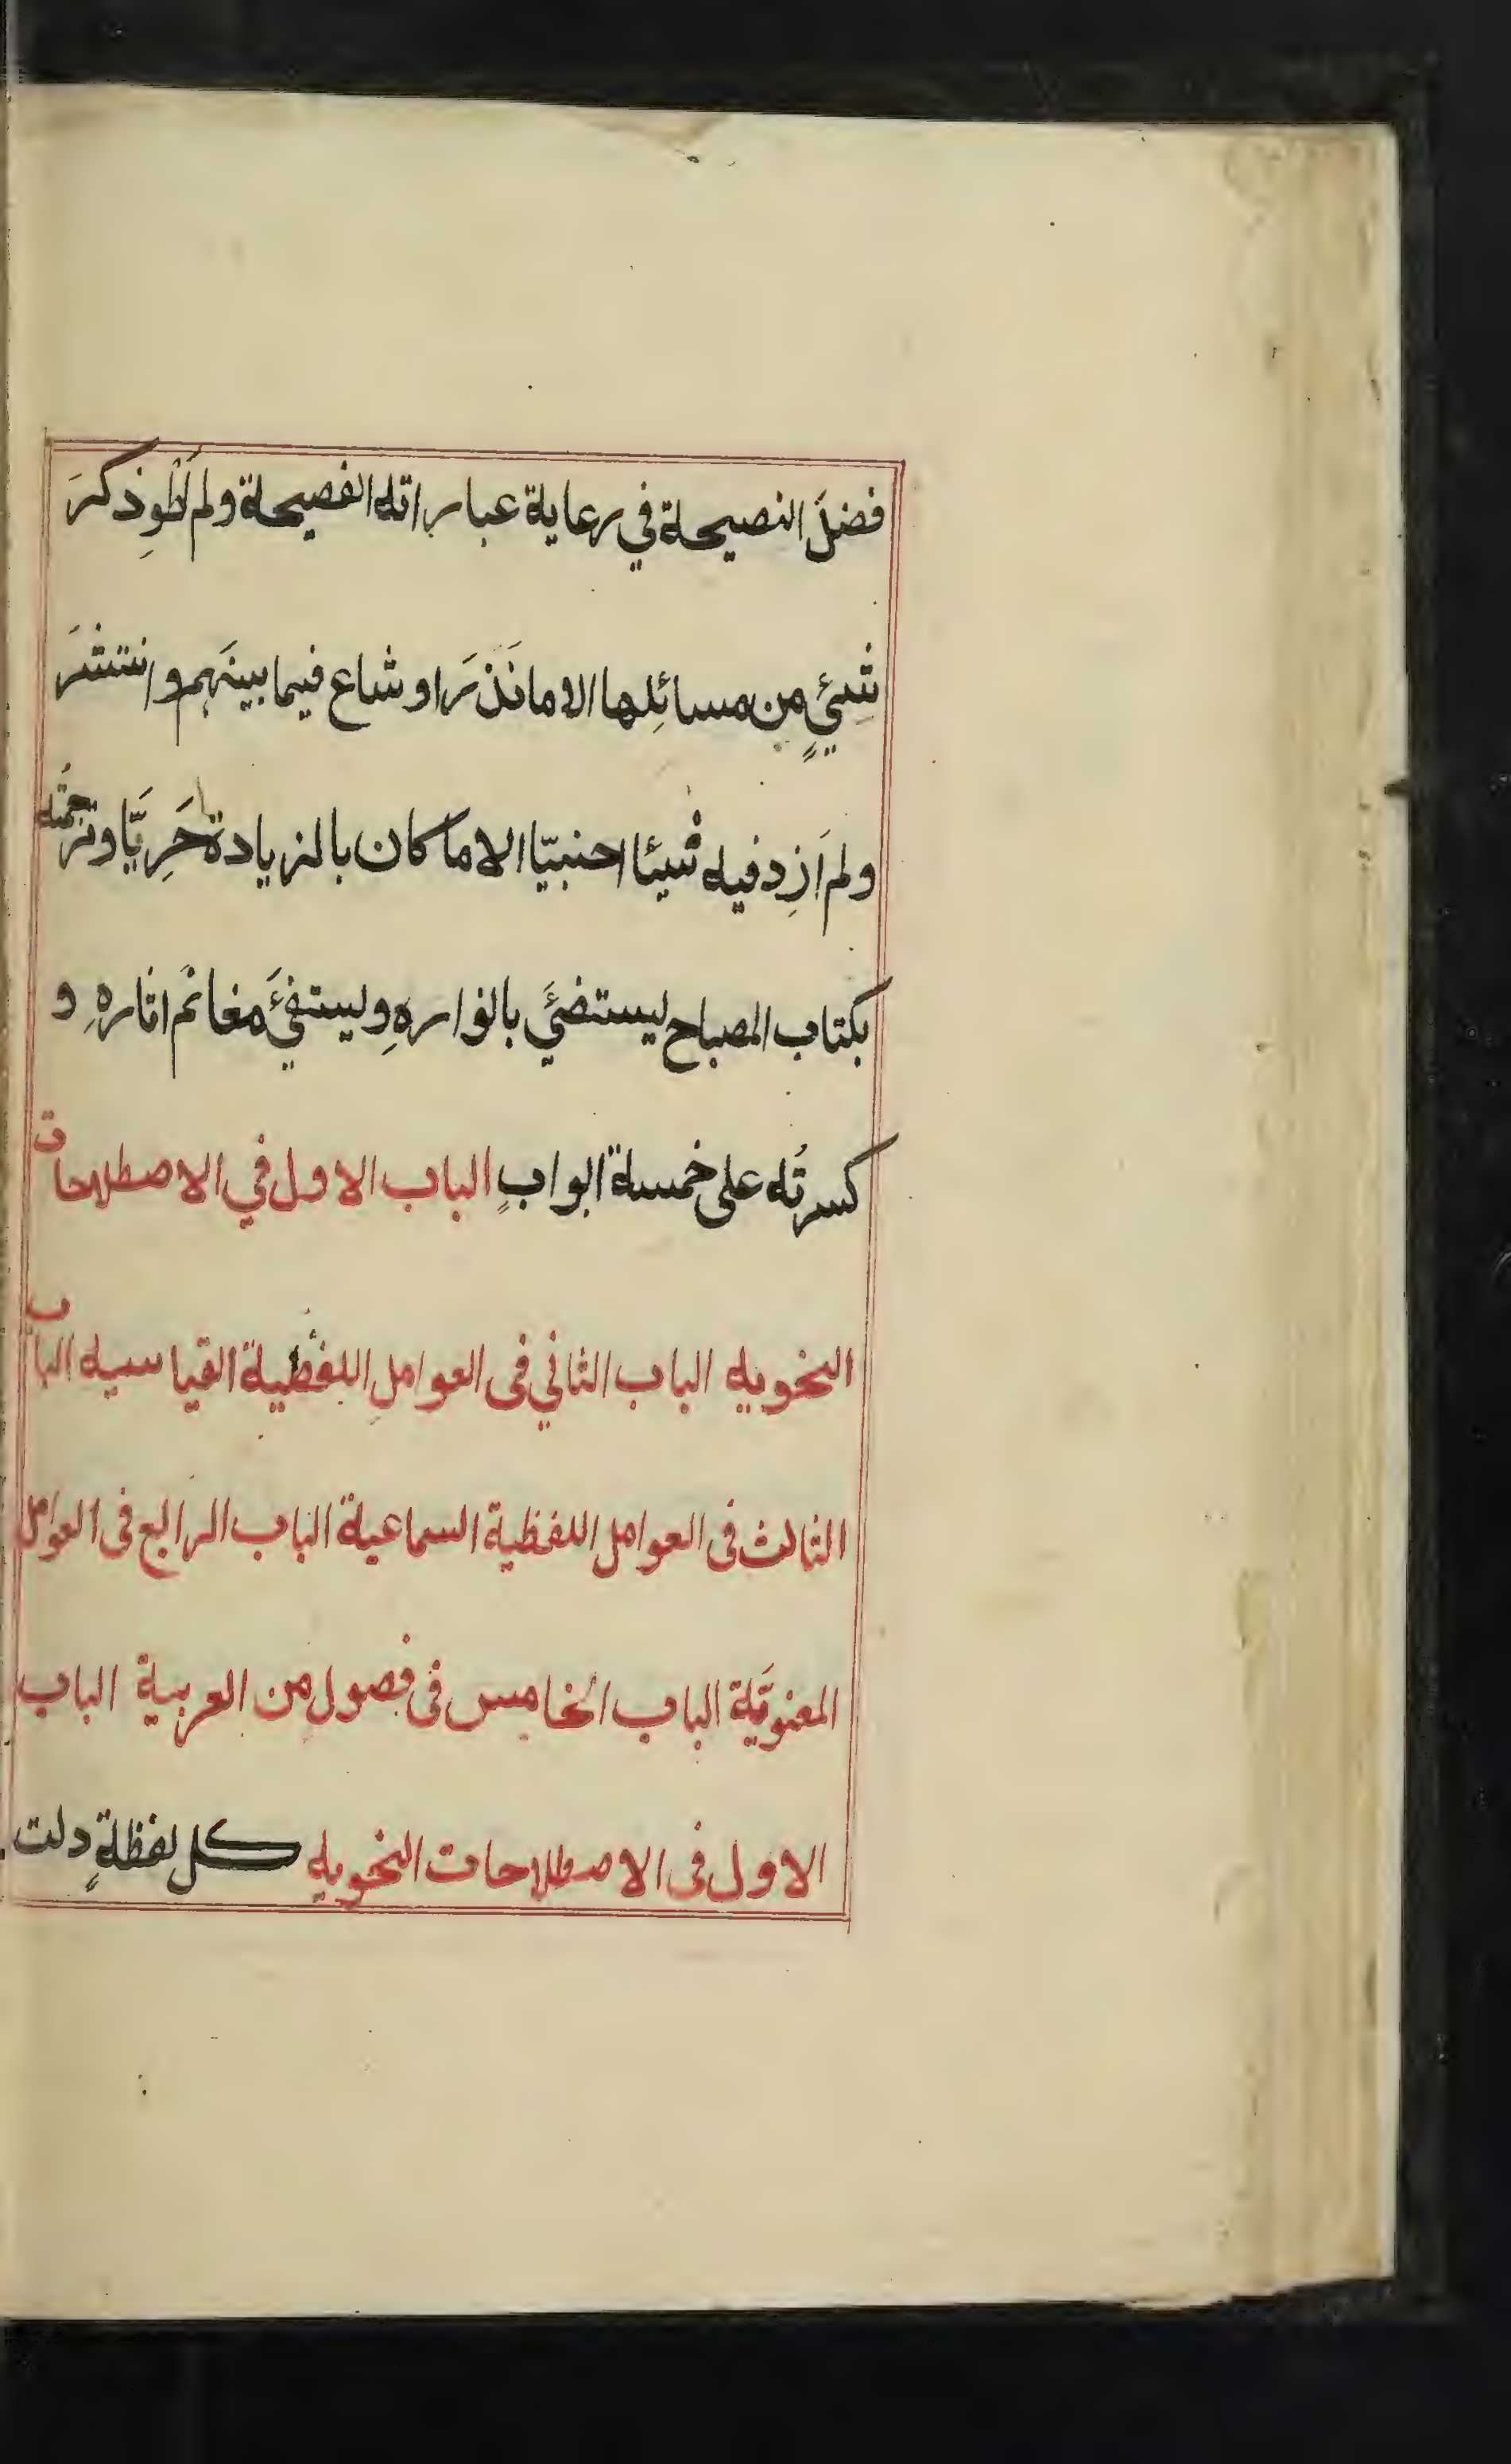 فضلَ النصيحة في رعاية عباراته الفصيحة ولم اَطْوِ ذكرَ
شيْئٍ مِن مسائِلها الا ما نَذَرَ او شاع فيما بينَهم وانتشرَ
ولم اَزِد فيه شيئا اجنبيّا الا ما كان بالزيادة حَرِيَّا وترجمتُه
بكتاب المصباح ليستضيْئَ بانوارهِ وليستفيْئَ مغانم اثارهِ و
كسرتُه على خمسة ابوابٍ الباب الاول في الاصطلاحات
النحويه الباب الثاني فى العواملِ اللفظية القياسيه الباب
الثالث فى العوامل اللفظية السماعية الباب الرابع فى العوامل
المعنويَّة الباب الخامس فى فصول من العربية الباب
الاول فى الاصطلاحات النحويه كل لفظةٍ دلت